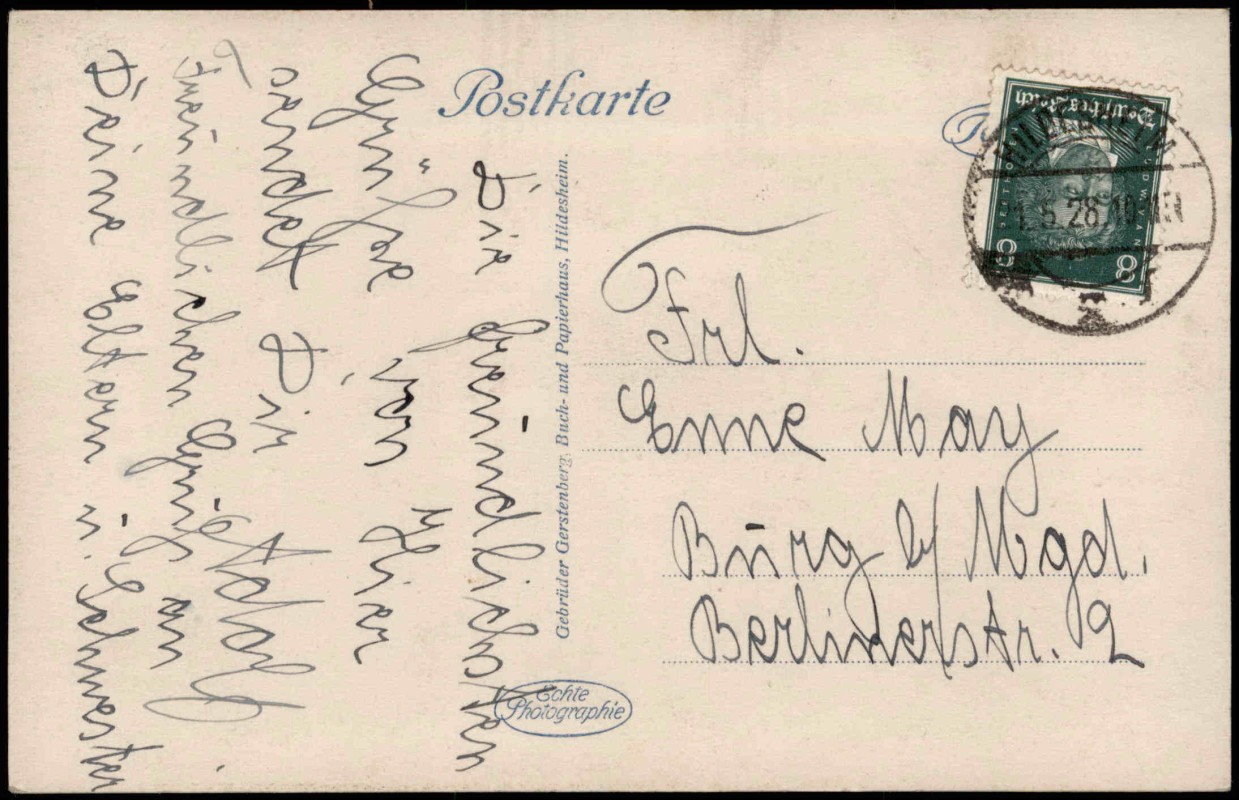 Postkarte
Die freundlichsten
Grüße von Hier
sendet Dir
Adolf
Freundlichen Gruß an
Deine Eltern u. Schwester
Gebrüder Gerstenberg, Buch- und Papierhaus, Hildesheim.
Echte
Photographie
Deutsches Reich
8 8
HILDESHEIM
1.5.28.10-11N
Frl.
Enne May
Burg b/ Mgd.
Berlinerstr. 2